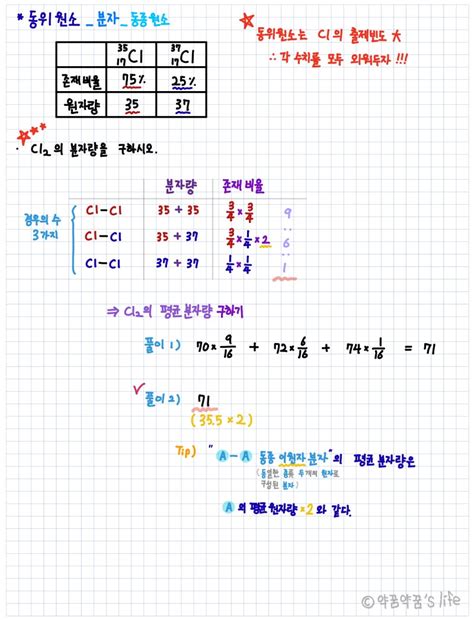 * 동위 원소 _ 분자 _ 동종원소
³⁵₁₇Cl ³⁷₁₇Cl
존재 비율 75% 25%
원자량 35 37
☆ 동위원소는 Cl의 출제빈도 大
∴ 각 수치를 모두 외워두자 !!!
☆**
· Cl₂의 분자량을 구하시오.
분자량 존재 비율
경우의 수
3가지
Cl-Cl 35 + 35 3/4 × 3/4 9
:
Cl-Cl 35 + 37 3/4 × 1/4 × 2 6
:
Cl-Cl 37 + 37 1/4 × 1/4 1
⇒ Cl₂의 평균 분자량 구하기
풀이 1) 70 × 9/16 + 72 × 6/16 + 74 × 1/16 = 71
✓ 풀이 2) 71
(35.5 × 2)
Tip) " A - A 동종 이원자 분자"의 평균 분자량은
(동일한 종류 두개의 원자로
구성된 분자)
A의 평균 원자량 × 2 와 같다.
© 약꿈약꿈's life